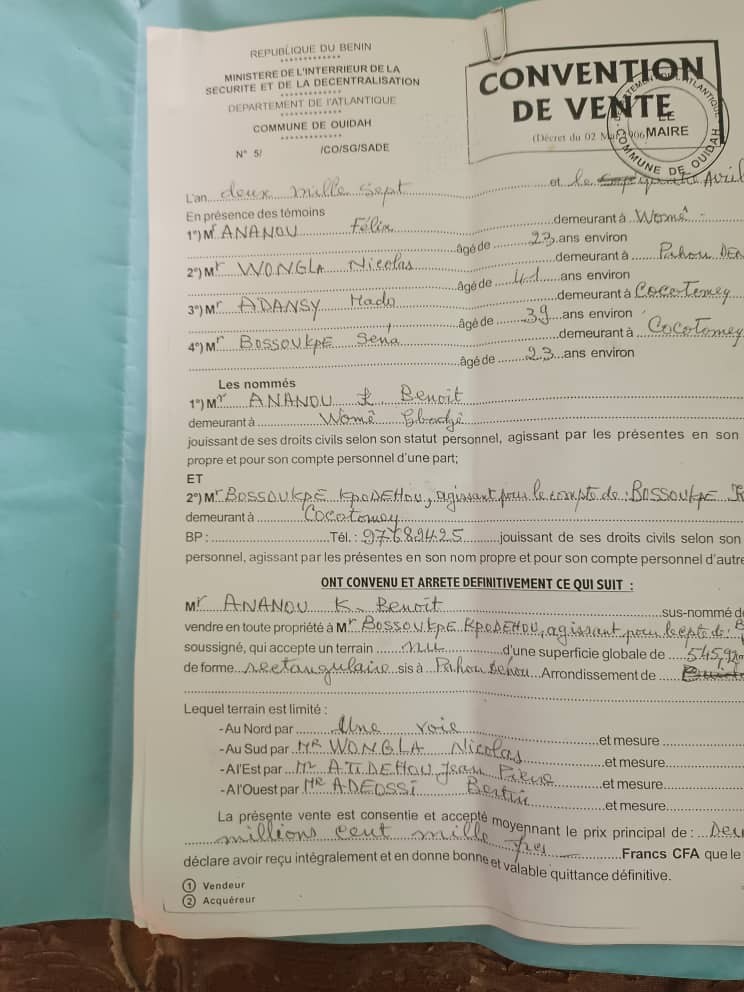 REPUBLIQUE DU BENIN
MINISTERE DE L'INTERRIEUR DE LA
SECURITE ET DE LA DECENTRALISATION
DEPARTEMENT DE l'ATLANTIQUE
COMMUNE DE OUIDAH
N° 5/ /CO/SG/SADE
CONVENTION
DE VENTE
(Décret du 02 1906
LE
MAIRE
COMMUNE DE OUIDAH
L'an deux mille sept et le Avril
En présence des témoins
1°) Mr ANANOU Félix demeurant à Womê
âgé de 23 ans environ
2°) Mr WONGLA Nicolas demeurant à Pahou
âgé de 41 ans environ
3°) Mr ADANSY Mado demeurant à Cocotomey
âgé de 39 ans environ
4°) Mr BOSSOUKPE Sena demeurant à Cocotomey
âgé de 23 ans environ
Les nommés
1°) Mr ANANOU K Benoît
demeurant à Womê
jouissant de ses droits civils selon son statut personnel, agissant par les présentes en son
propre et pour son compte personnel d'une part;
ET
2°) Mr BOSSOUKPE KPODEHOU, agissant pour le compte de : BOSSOUKPE
demeurant à Cocotomey
BP : Tél. : 97689425 jouissant de ses droits civils selon son
personnel, agissant par les présentes en son nom propre et pour son compte personnel d'autre
ONT CONVENU ET ARRETE DEFINITIVEMENT CE QUI SUIT :
Mr ANANOU K. Benoît sus-nommé d
vendre en toute propriété à Mr BOSSOUKPE KPODEHOU, agissant pour le cpte de : B
soussigné, qui accepte un terrain nu d'une superficie globale de
de forme rectangulaire sis à Pahou Dehou Arrondissement de
Lequel terrain est limité :
-Au Nord par Une voie et mesure
-Au Sud par MR WONGLA Nicolas et mesure
-A l'Est par Mr ATIDEHOU Jean Pierre et mesure
-A l'Ouest par MR ADEOSSI Bertin et mesure
La présente vente est consentie et accepté moyennant le prix principal de : Deu
millions cent mille frcs Francs CFA que le
déclare avoir reçu intégralement et en donne bonne et valable quittance définitive.
① Vendeur
② Acquéreur